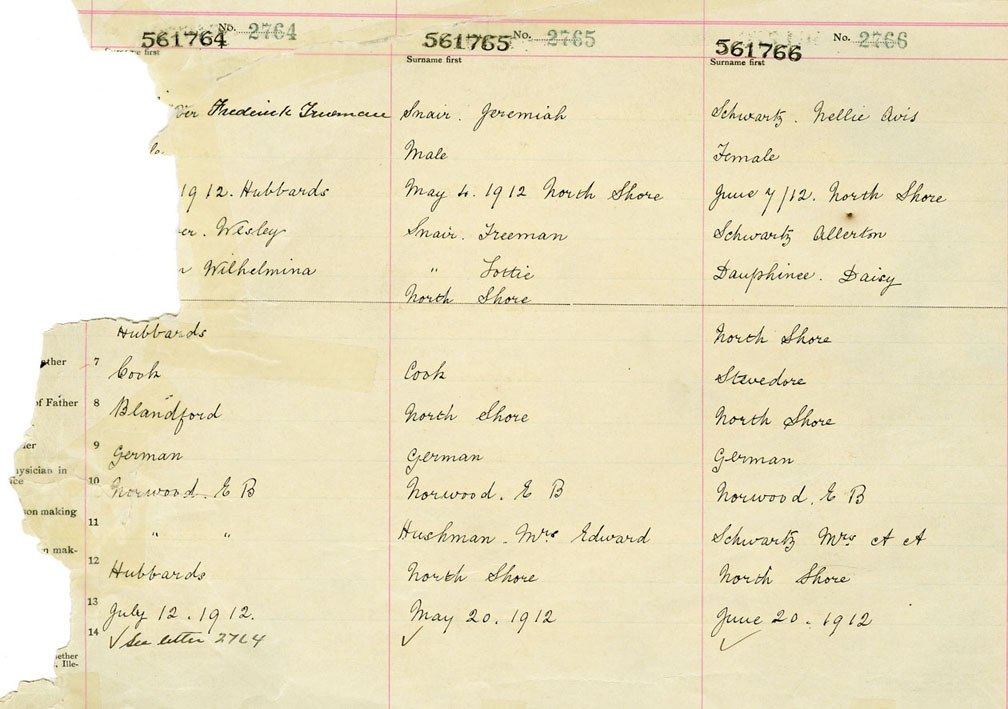 561764 No. 2764
561765 No. 2765
561766 No. 2766
Surname first
Surname first
Surname first
ver Frederick Freeman
Snair. Jeremiah
Schwartz. Nellie Avis
Male
Female
1912. Hubbards
May 4. 1912 North Shore
June 7/12. North Shore
er. Wesley
Snair. Freeman
Schwartz Allerton
Wilhelmina
" Lottie
Dauphinee. Daisy
North Shore
Hubbards
North Shore
ather 7 Cook
Cook
Stevedore
of Father 8 Blandford
North Shore
North Shore
er 9 German
German
German
ysician in
ce
10 Norwood. E B
Norwood. E B
Norwood. E B
on making
11 " "
Hushman. Mrs Edward
Schwartz Mrs A A
n mak-
12 Hubbards
North Shore
North Shore
13 July 12. 1912.
May 20. 1912
June 20. 1912
14 ✓ See letter 2764
✓
✓
ether
, Ille-